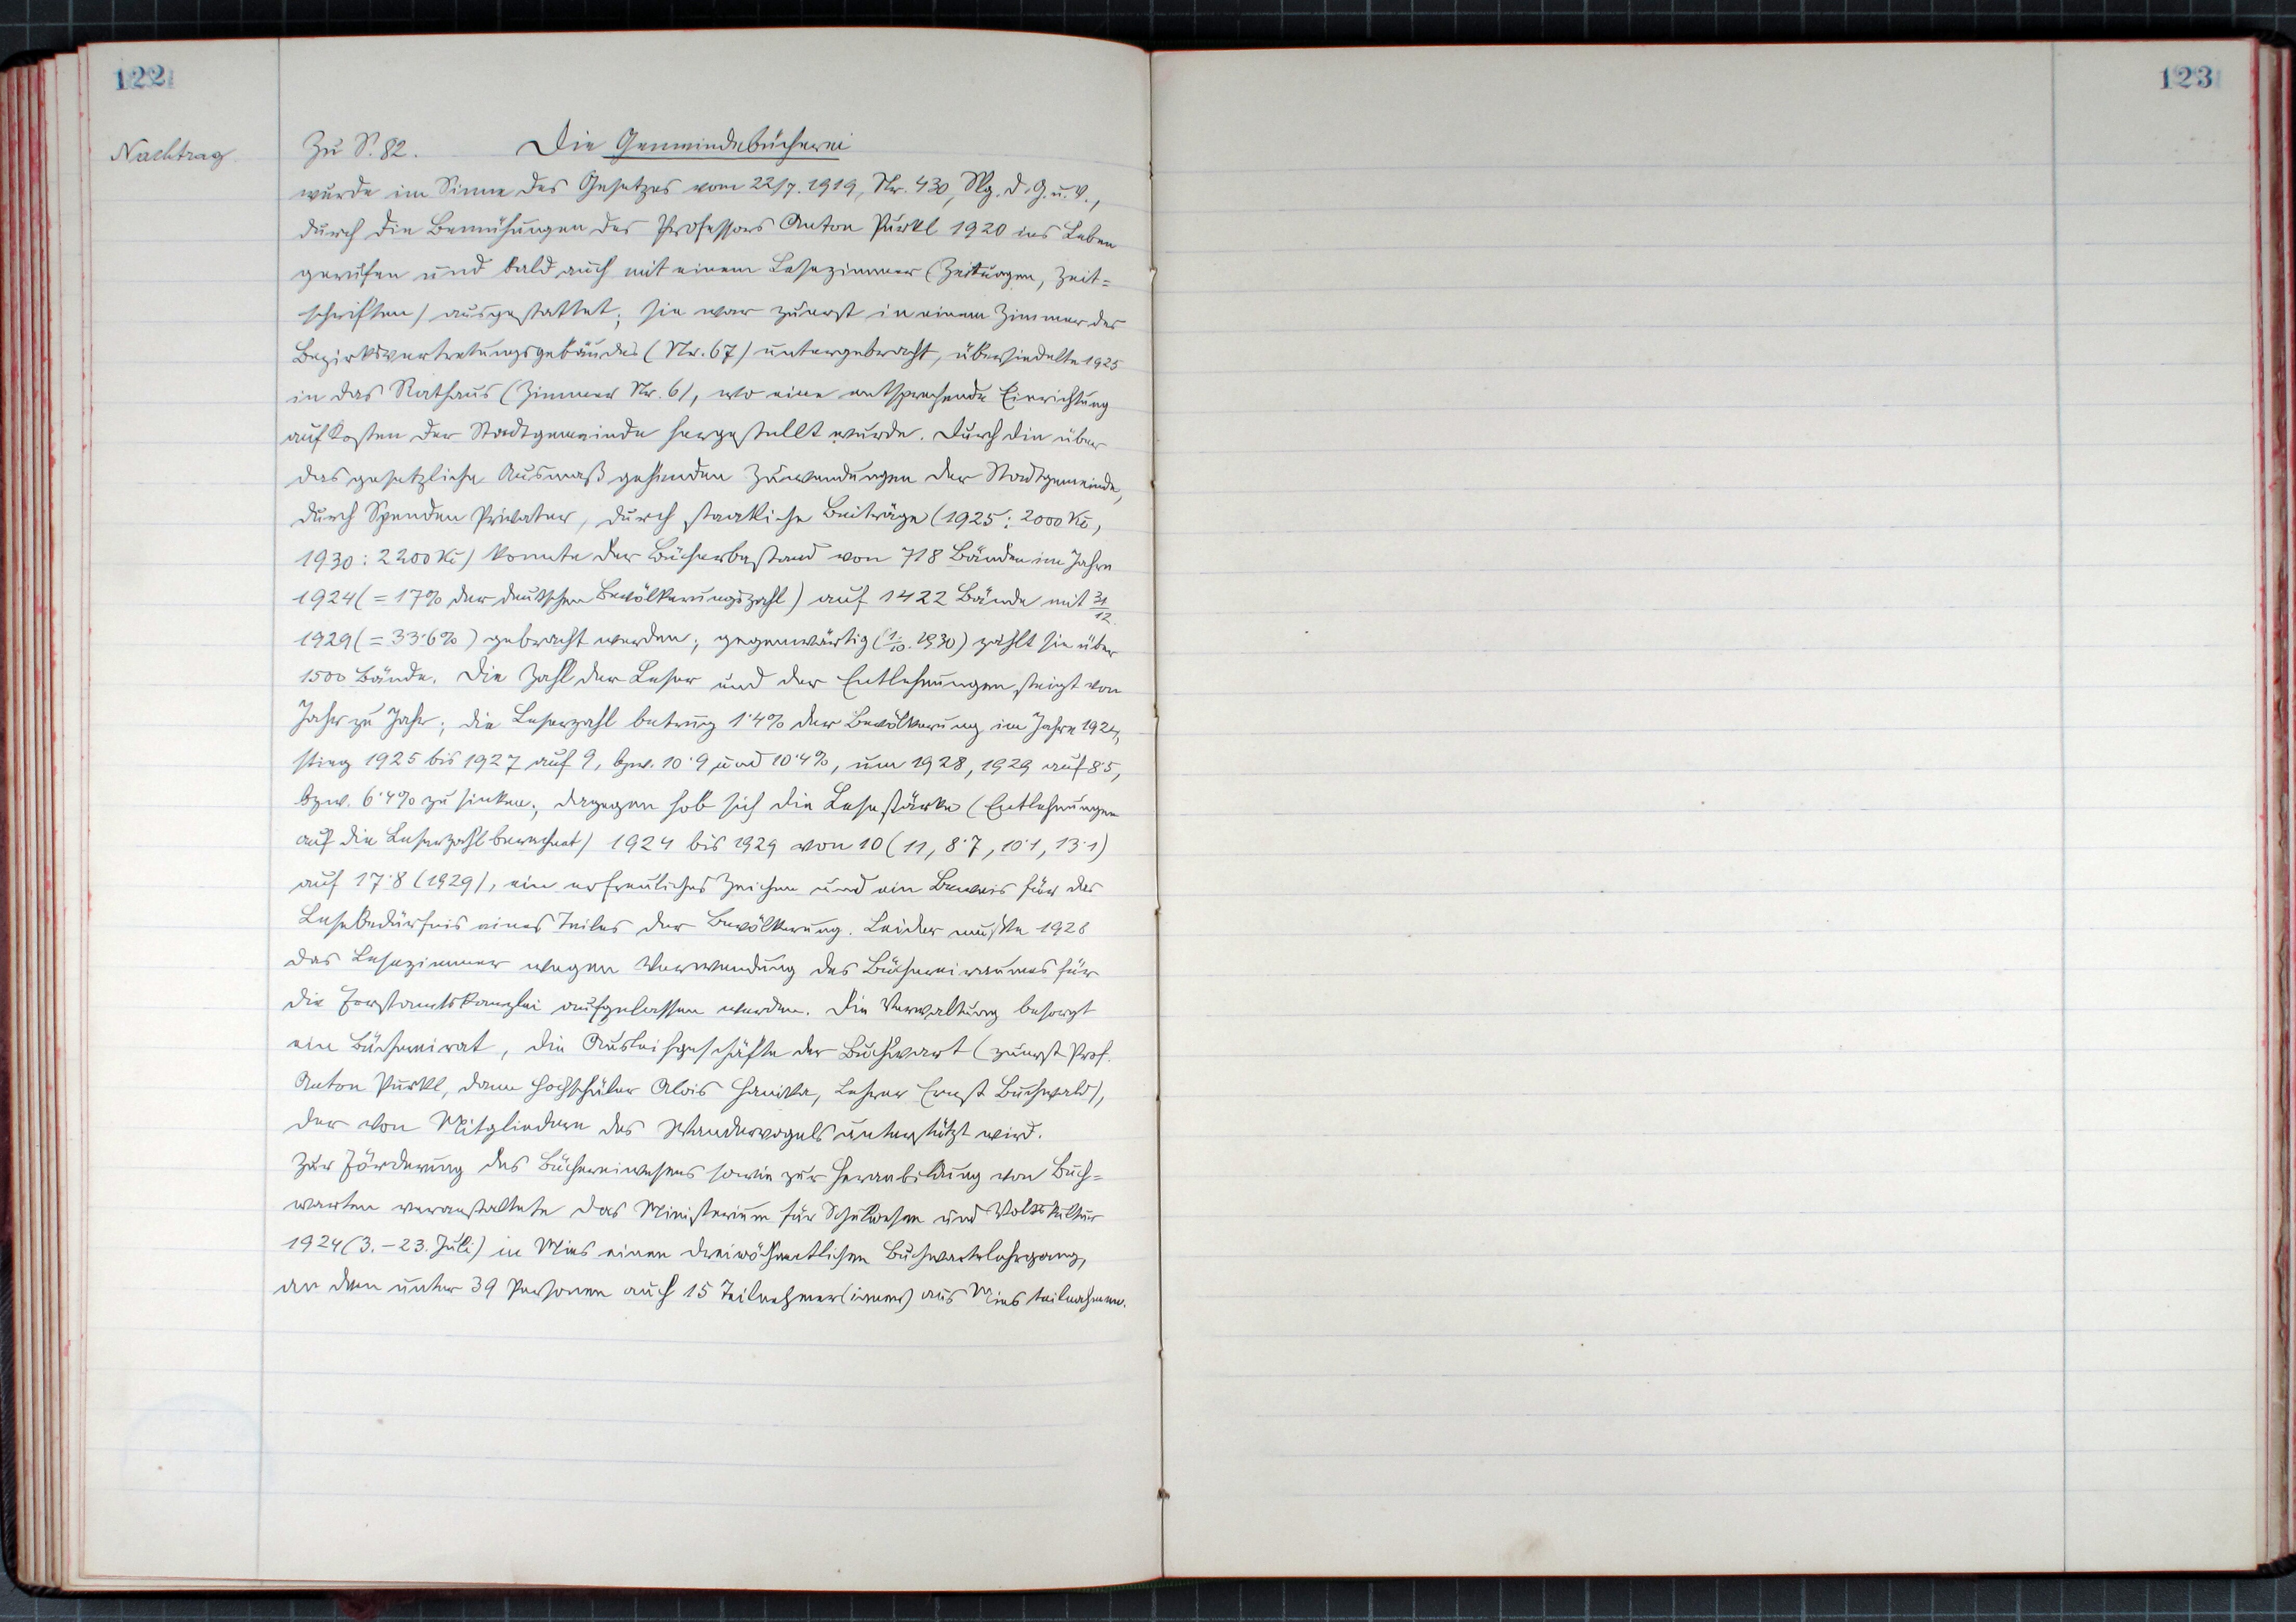 122
123
Nachtrag
Zu S. 82. Die Gemeindebücherei
wurde im Sinne des Gesetzes vom 22/7. 1919, Nr. 430, Slg. d. G. u. V.,
durch die Bemühungen des Professors Anton Purkl 1920 ins Leben
gerufen und bald auch mit einem Lesezimmer (Zeitungen, Zeit=
schriften) ausgestattet; sie war zuerst in einem Zimmer des
Bezirksvertretungsgebäudes (Nr. 67) untergebracht, übersiedelte 1925
in das Rathaus (Zimmer Nr. 6), wo eine entsprechende Einrichtung
auf Kosten der Stadtgemeinde hergestellt wurde. Durch die über
das gesetzliche Ausmaß gehenden Zuwendungen der Stadtgemeinde,
durch Spenden Privater, durch staatliche Beiträge (1925: 2000 Kč,
1930: 2200 Kč) konnte der Bücherbestand von 718 Bänden im Jahre
1924 (= 17% der deutschen Bevölkerungszahl) auf 1422 Bände mit 31/12.
1929 (= 33·6%) gebracht werden; gegenwärtig (1/10. 1930) zählt sie über
1500 Bände. Die Zahl der Leser und der Entlehnungen steigt von
Jahr zu Jahr; die Leserzahl betrug 1·4% der Bevölkerung im Jahre 1924,
stieg 1925 bis 1927 auf 9, bzw. 10·9 und 10·4%, um 1928, 1929 auf 8·5,
bzw. 6·4% zu sinken; dagegen hob sich die Lesestärke (Entlehnungen
auf die Leserzahl berechnet) 1924 bis 1929 von 10 (11, 8·7, 10·1, 13·1)
auf 17·8 (1929), ein erfreuliches Zeichen und ein Beweis für das
Lesebedürfnis eines Teiles der Bevölkerung. Leider mußte 1928
das Lesezimmer wegen Verwendung des Büchereiraumes für
die Forstamtskanzlei aufgelassen werden. Die Verwaltung besorgt
ein Büchereirat, die Ausleihgeschäfte der Buchwart (zuerst Prof.
Anton Purkl, dann Hochschüler Alois Hanika, Lehrer Ernst Buchwald),
der von Mitgliedern des Wandervogels unterstützt wird.
Zur Förderung des Büchereiwesens sowie zur Heranbildung von Buch=
warten veranstaltete das Ministerium für Schulwesen und Volkskultur
1924 (3.-23. Juli) in Mies einen dreiwöchentlichen Buchwartelehrgang,
an dem unter 39 Personen auch 15 Teilnehmer(innen) aus Mies teilnahmen.